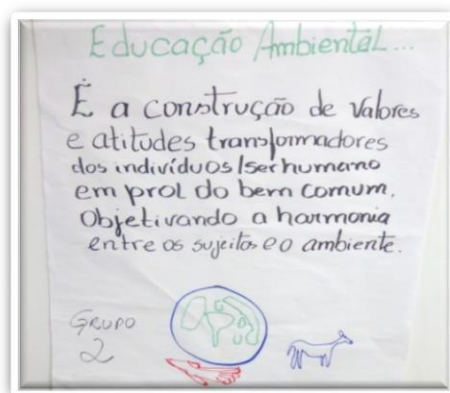 Educação Ambiental...
É a construção de valores
e atitudes transformadores
dos indivíduos/ser humano
em prol do bem comum.
Objetivando a harmonia
entre os sujeitos e o ambiente.
Grupo
2